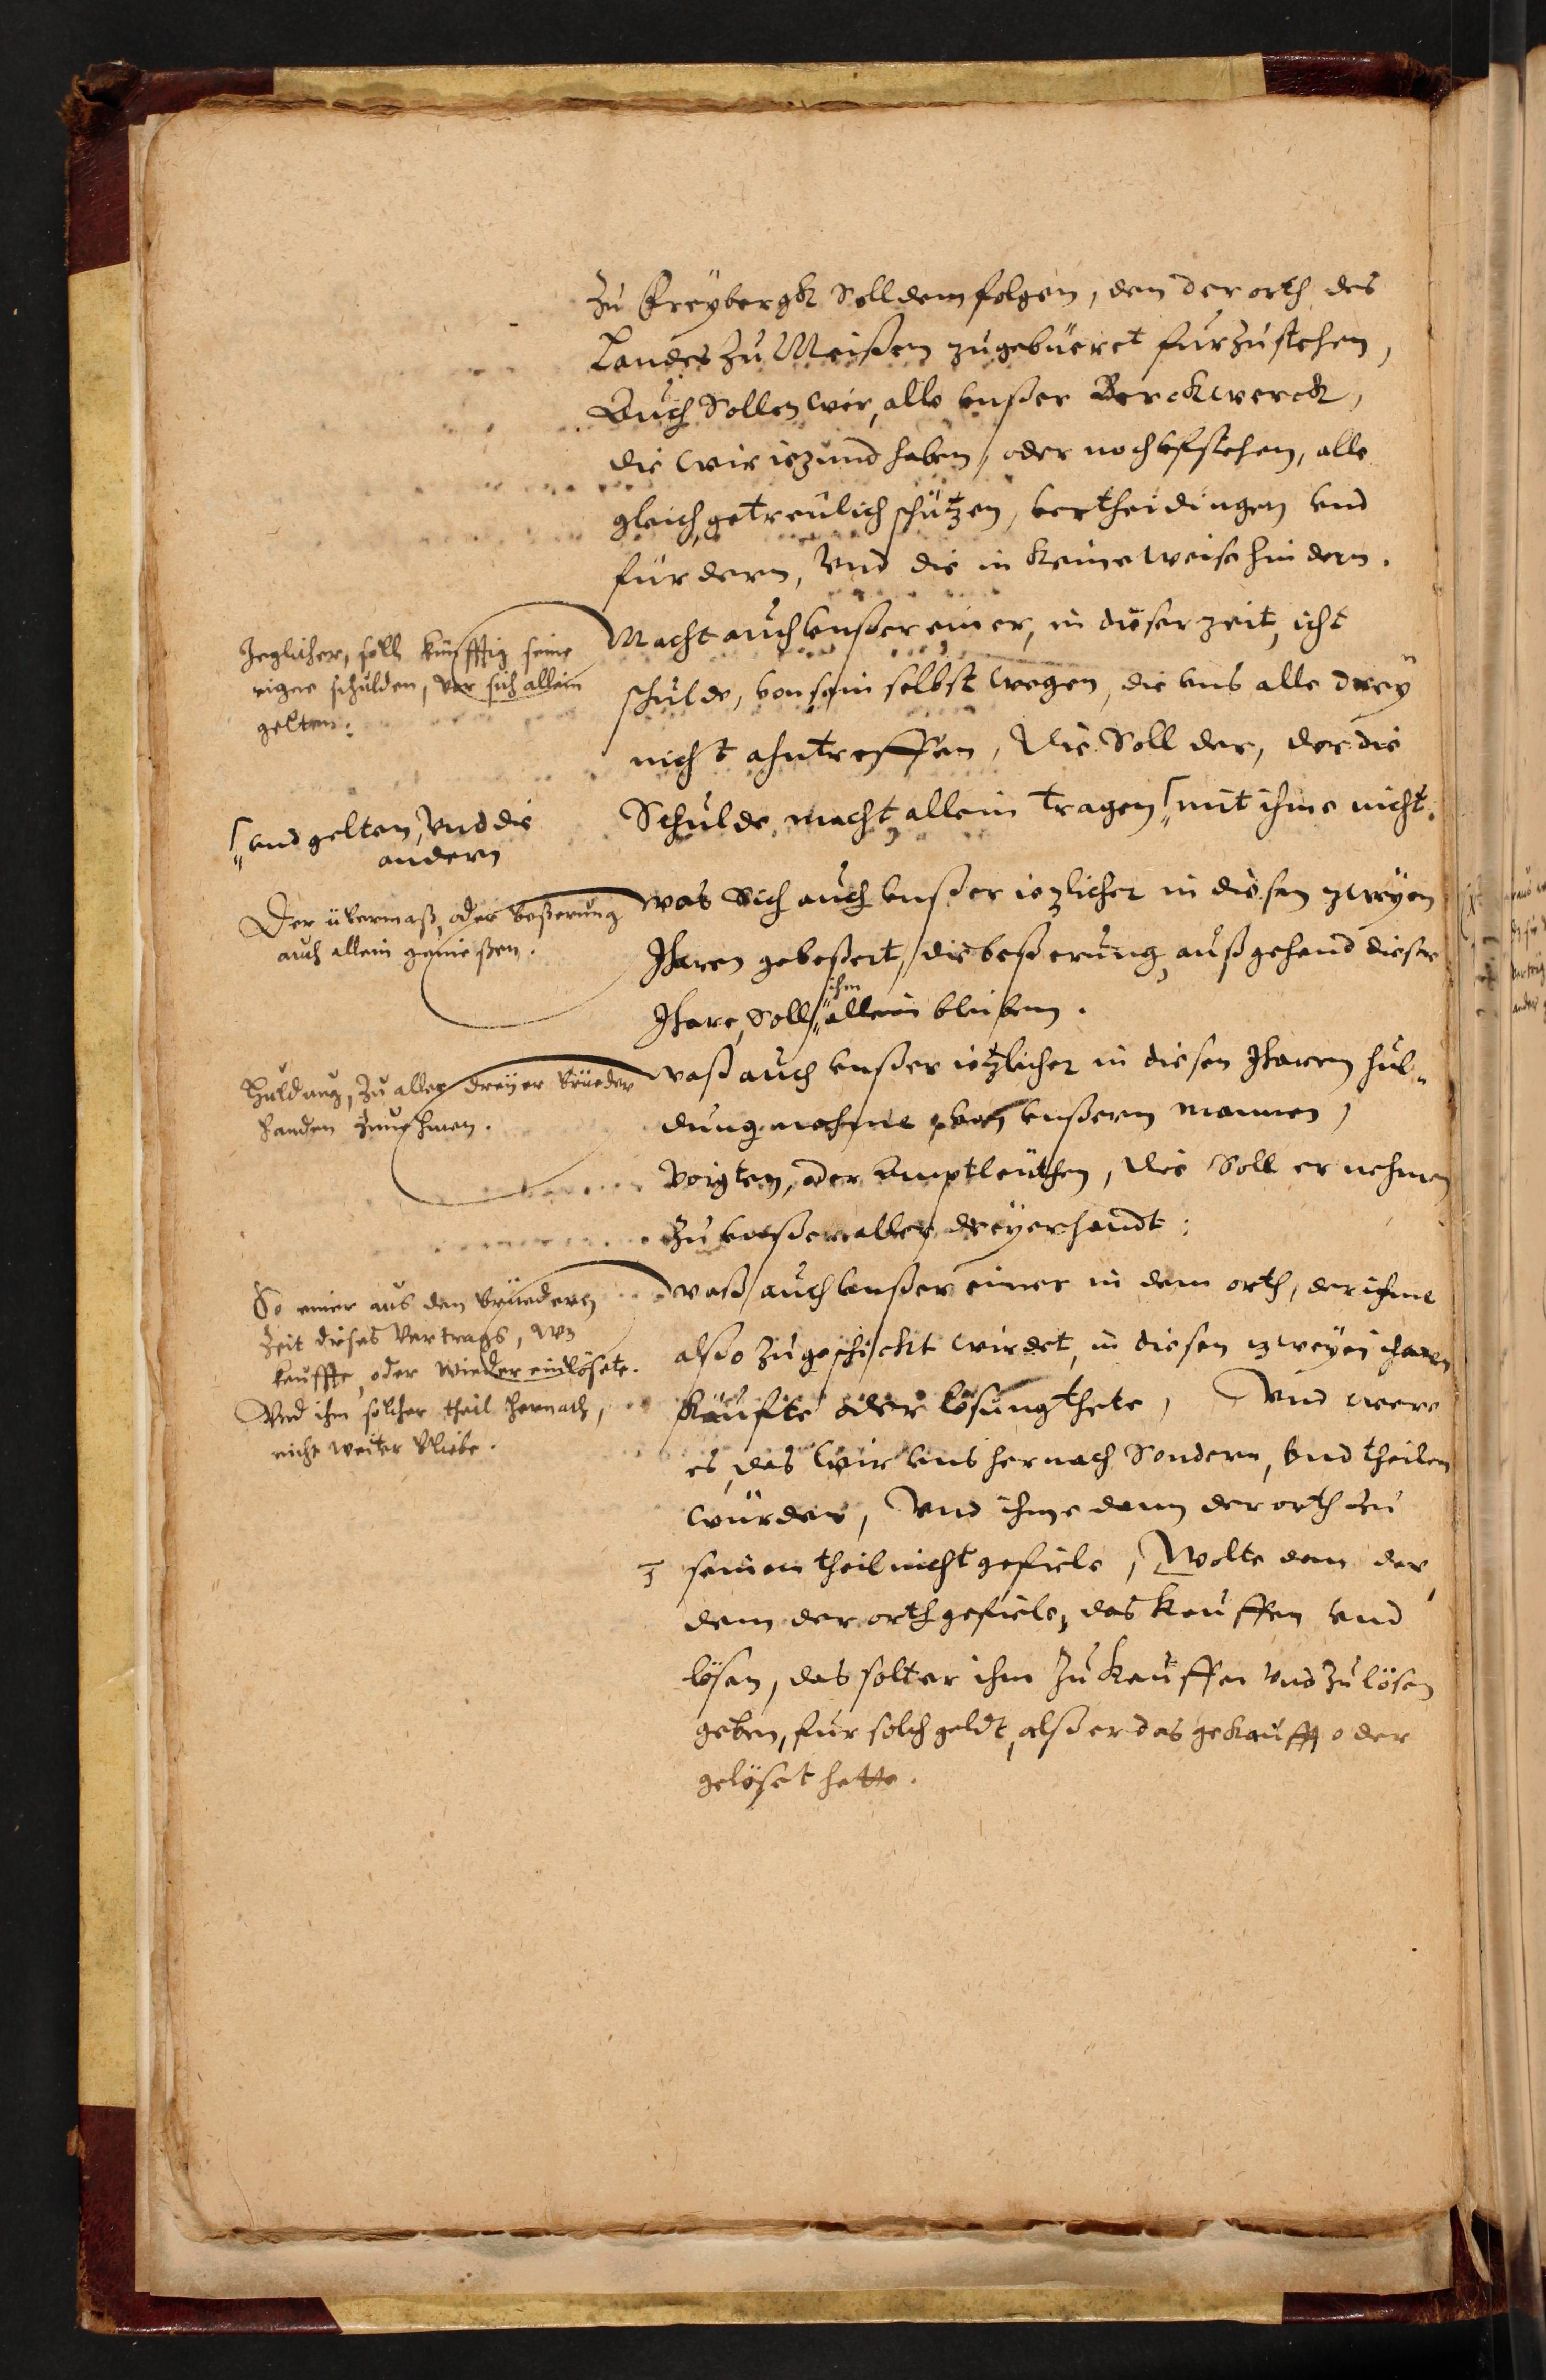 Zu Freÿbergk Soll dem folgen, dem der orth des
Landes Zu Meißen zugebüeret fur zu stehen,
Auch Sollen wir, alle vnßer Berckwerck,
die wir iezund haben, oder noch vfstehen, alle
gleich, getreulich schützen, vertheidingen vnd
fürdern, Vnd die in keine weise hindern.
Jeglicher, soll künfftig seine
eigene schulden, vor sich allein
gelten.
Macht auch vnßer einer, in dieser zeit, icht
schulde, von sein selbst wegen, die vns alle dreÿ
nicht ahntreffen, Die Soll der, der die
Schulde macht, allein tragen, mit ihme nicht.
vnd gelten, Vnd die
andern
Der übermaß, oder beßerung
auch allein genießen.
was Sich auch vnßer iezlicher in diesen zweÿen
Jharen gebeßert, die beßerung, außgehend dieser
ihm
Jhare, Soll, allein bleiben.
Huldung, Zu aller dreÿer brüeder
handen Zunehmen.
waß auch vnßer ietzlicher in diesen Jharen hul-
dung nehme, von vnßern mannen,
Voigten, oder Amptleüthen, Die Soll er nehmen
Zu vnßer aller dreÿer handt.
So einer aus den brüedern
Zeit dieses Vertrags, was
kauffte, oder wieder einlösete.
Vnd ihm solcher theil hernach,
nicht weiter bliebe.
waß auch vnßer einer in dem orth, der ihme
also Zugeschickt wirdet, in diesen zweÿen iharen
käufte oder lösung thete, Vnd were
es, das wir vns hernach Sondern, vnd theilen
würden, Vnd ihme dann der orth zu
seinem theil nicht gefiele, Wolte dann der,
dem der orth gefiele, das kauffen vnd
lösen, das solt er ihm Zu kauffen vnd Zu lösen
geben, fur solch geldt, alß er das gekaufft oder
gelöset hette.